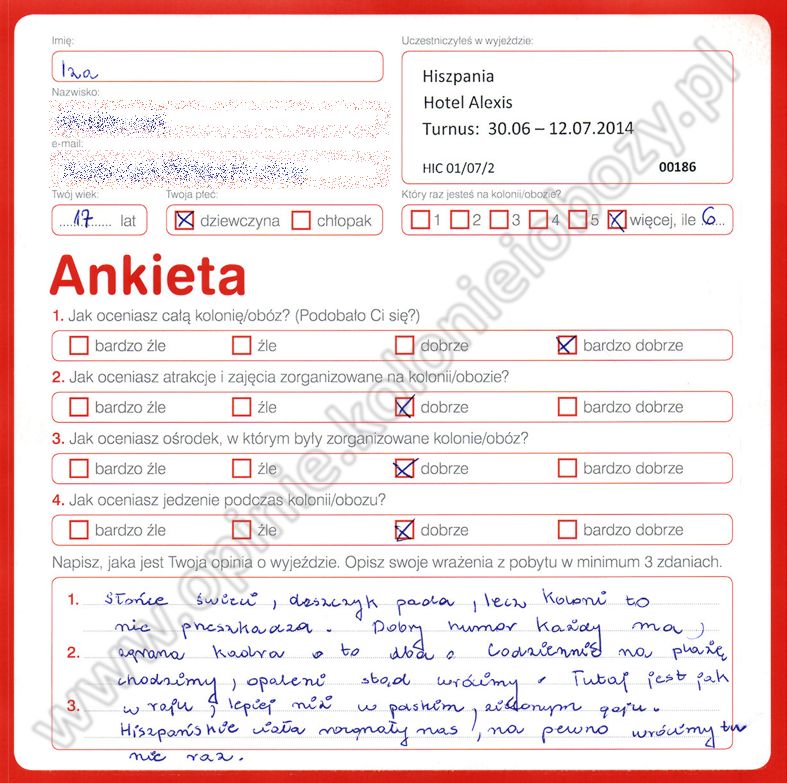 Imię:
Iza
Uczestniczyłeś w wyjeździe:
Hiszpania
Hotel Alexis
Turnus: 30.06 – 12.07.2014
HIC 01/07/2 00186
Nazwisko:
e-mail:
Twój wiek: Twoja płeć: Który raz jesteś na kolonii/obozie?
17 lat dziewczyna chłopak 1 2 3 4 5 więcej, ile 6
Ankieta
1. Jak oceniasz całą kolonię/obóz? (Podobało Ci się?)
bardzo źle źle dobrze bardzo dobrze
2. Jak oceniasz atrakcje i zajęcia zorganizowane na kolonii/obozie?
bardzo źle źle dobrze bardzo dobrze
3. Jak oceniasz ośrodek, w którym były zorganizowane kolonie/obóz?
bardzo źle źle dobrze bardzo dobrze
4. Jak oceniasz jedzenie podczas kolonii/obozu?
bardzo źle źle dobrze bardzo dobrze
Napisz, jaka jest Twoja opinia o wyjeździe. Opisz swoje wrażenia z pobytu w minimum 3 zdaniach.
1. Słońce świeci, deszczyk pada, lecz Koloni to
nic przeszkadza. Dobry humor Każdy ma,
2. zgrana Kadra o to dba. Codziennie na plażę
chodzimy, opaleni stąd wrócimy. Tutaj jest jak
3. w raju, lepiej niż w zielonym gaju.
Hiszpańskie nas, na pewno wrócimy tu
nie raz.
www.opinie.kolonieiobozy.pl